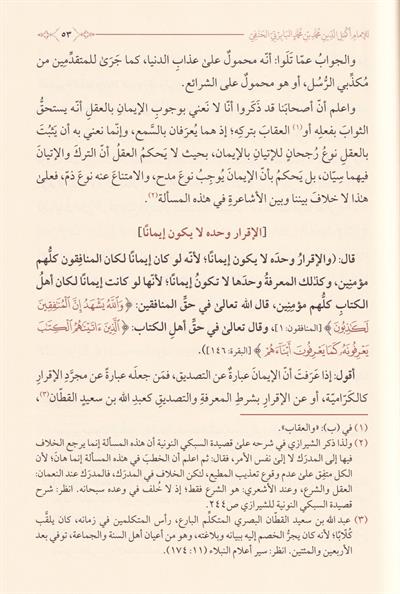 للإمام أكمل الدين محمد بن محمد البابرتي الحنفي
٥٣
والجوابُ عمّا تَلَوا: أنّه محمولٌ على عذاب الدنيا، كما جَرَىٰ للمتقدِّمين من
مُكذِّبي الرُّسُل، أو هو محمولٌ على الشرائع.
واعلم أنّ أصحابَنا قد ذَكَروا أنّا لا نَعني بوجوبِ الإيمانِ بالعقلِ أنّه يستحقُّ
الثوابَ بفعلِه أو(١) العقابَ بتركِه؛ إذ هما يُعرَفان بالسَّمع، وإنّما نعني به أن يَثبُتَ
بالعقلِ نوعُ رُجحانٍ للإتيانِ بالإيمان، بحيث لا يَحكمُ العقلُ أنّ التركَ والإتيانَ
فيهما سِيَّان، بل يَحكم بأنّ الإيمانَ يُوجِبُ نوعَ مدح، والامتناعَ عنه نوعَ ذمّ، فعلىٰ
هذا لا خلافَ بيننا وبين الأشاعرةِ في هذه المسألة(٢).
[الإقرار وحدَه لا يكون إيمانًا]
قال: (والإقرارُ وحدَه لا يكون إيمانًا؛ لأنّه لو كان إيمانًا لكان المنافِقون كلُّهم
مؤمنِين، وكذلك المعرفةُ وحدَها لا تكونُ إيمانًا؛ لأنّها لو كانت إيمانًا لكان أهلُ
الكتابِ كلُّهم مؤمِنِين، قال اللهُ تعالىٰ في حقِّ المنافقين: ﴿وَٱللَّهُ يَشْهَدُ إِنَّ ٱلْمُنَٰفِقِينَ
لَكَٰذِبُونَ﴾ [المنافقون: ١]، وقال تعالىٰ في حقِّ أهلِ الكتاب: ﴿ٱلَّذِينَ ءَاتَيْنَٰهُمُ ٱلْكِتَٰبَ
يَعْرِفُونَهُۥ كَمَا يَعْرِفُونَ أَبْنَآءَهُمْ﴾ [البقرة: ١٤٦]).
أقول: إذا عَرَفتَ أنّ الإيمانَ عبارةٌ عن التصديق، فمَن جعلَه عبارةً عن مجرَّدِ الإقرارِ
كالكَرّاميّة، أو عن الإقرارِ بشرطِ المعرفةِ والتصديقِ كعبدِ الله بن سعيدٍ القطّان(٣)،
(١) في (ب): «والعقاب».
(٢) ولذا ذكر الشيرازي في شرحه على قصيدة السبكي النونية أن هذه المسألة إنما يرجع الخلاف
فيها إلى المدرك لا إلى نفس الأمر، فقال: ثم اعلم أن الخطبَ في هذه المسألة إنما هانَ؛ لأن
الكل متفِق على عدم وقوع تعذيب المطيع، لكن الخلاف في المدرك، فالمدرك عند النعمان:
العقل والشرع، وعند الأشعري: هو الشرع فقط؛ إذ لا خُلف في وعده سبحانه. انظر: شرح
قصيدة السبكي النونية للشيرازي ص٢٤٤.
(٣) عبد الله بن سعيد القطّان البصري المتكلِّم البارع، رأس المتكلمين في زمانه، كان يلقَّب
كُلّابًا؛ لأنه كان يجرُّ الخصم إليه ببيانه وبلاغته، وهو من أعيان أهل السنة والجماعة، توفي بعد
الأربعين والمئتين. انظر: سير أعلام النبلاء (١١: ١٧٤).